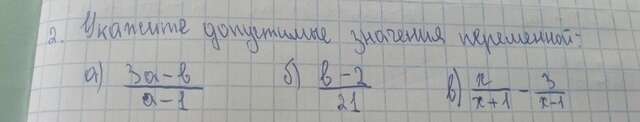 2. Укажите допустимые значения переменной:
а) (3a-b)/(a-1) б) (b-2)/21 в) x/(x+1) - 3/(x-1)